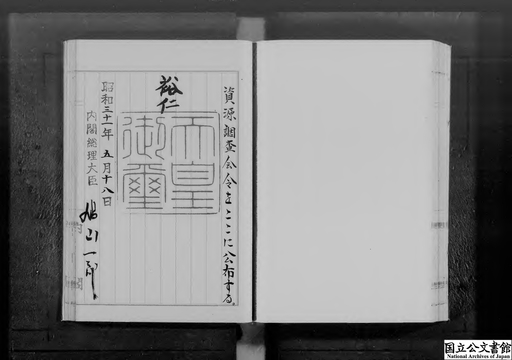 資源調査会令をここに公布する。
裕仁
天皇御璽
昭和三十一年五月十八日
内閣総理大臣
鳩山一郎
国立公文書館
National Archives of Japan